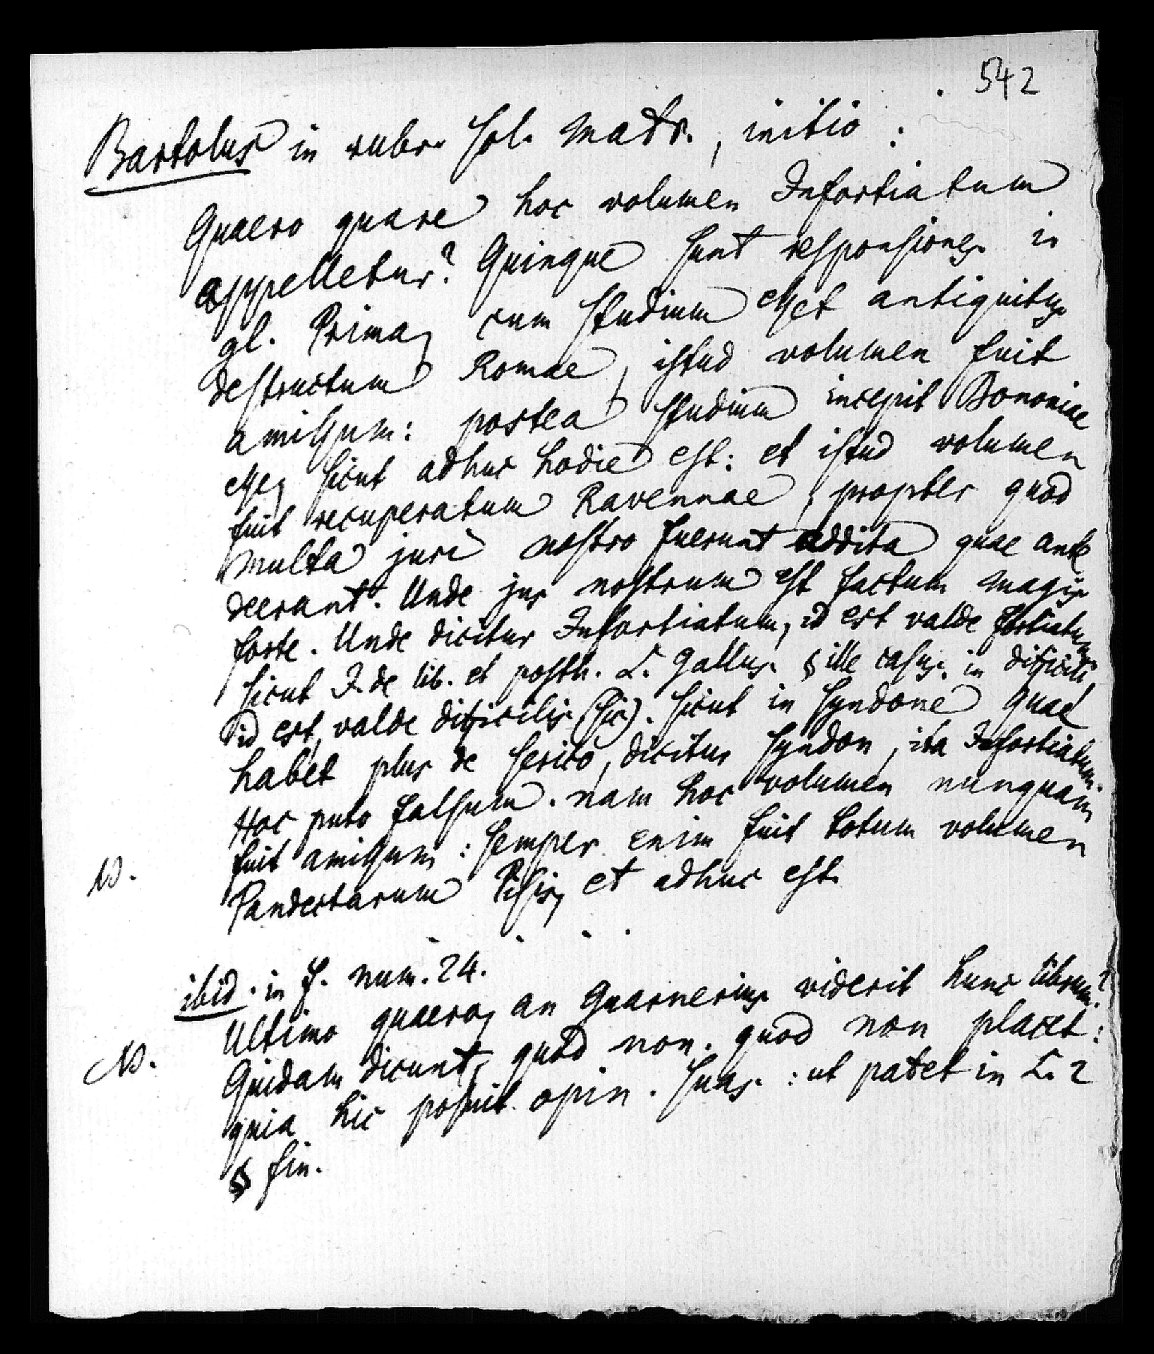 542
Bartolus in rubr. sol. matr., initio :
Quaero quare hoc volumen Infortiatum
appelletur? Quinque sunt responsiones in
gl. Prima, cum studium esset antiquitus
destructum Romae, istud volumen fuit
amissum: postea studium incepit Bononiae
esse, sicut adhuc hodie est: et istud volumen
fuit recuperatum Ravennae, propter quod
multa juri nostro fuerunt addita quae ante
deerant. Unde jus nostrum est factum magis
forte. Unde dicitur Infortiatum, id est valde fortiatum
sicut J. de lib. et posth. L. Gallus. § ille casus. in difficili,
id est, valde difficilis (sic). sicut in syndone quae
habet plus de serico, dicitur syndon, ita Infortiatum.
Hoc puto falsum. nam hoc volumen nunquam
fuit amissum: semper enim fuit totum volumen
Pandectarum Pisis, et adhuc est.
N.
ibid. in f. num. 24.
Ultimo quaero, an Guarnerius viderit hunc librum?
Quidam dicunt, quod non. quod non placet:
N.
quia hic posuit opin. suas: ut patet in L. 2
§ fin.